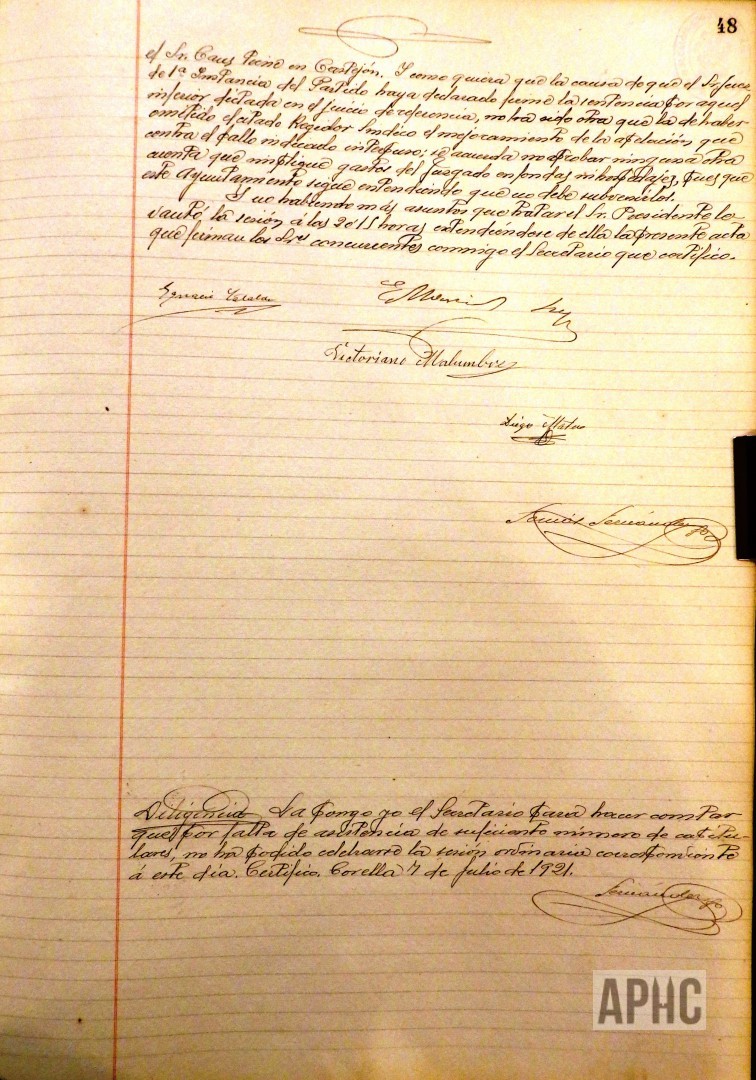 48
el Sr. Caus tiene en Castejón. Y como quiera que la causa de que el Sr. Juez
de 1ª Instancia del Partido haya declarado firme la sentencia por aquel
inferior dictada en el juicio de referencia, no ha sido otra que la de haber
omitido el citado Regidor Síndico el mejoramiento de la apelación que
contra el fallo indicado interpuso; se acuerda no aprobar ninguna otra
cuenta que implique gastos del juzgado en fondas ni hospedajes, pues que
este Ayuntamiento sigue entendiendo que no debe subvenirlos.
Y no habiendo más asuntos que tratar el Sr. Presidente le-
vantó la sesión á las 20'15 horas extendiéndose de ella la presente acta
que firman los Sres concurrentes conmigo el Secretario que certifico.
Ignacio Catalan
Victoriano Malumbres
Diego Mateo
Fernández
Diligencia La pongo yo el Secretario para hacer constar
que por falta de asistencia de suficiente número de capitu-
lares, no ha podido celebrarse la sesión ordinaria correspondiente
á este día. Certifico. Corella 7 de Julio de 1921.
Fernández
APHC